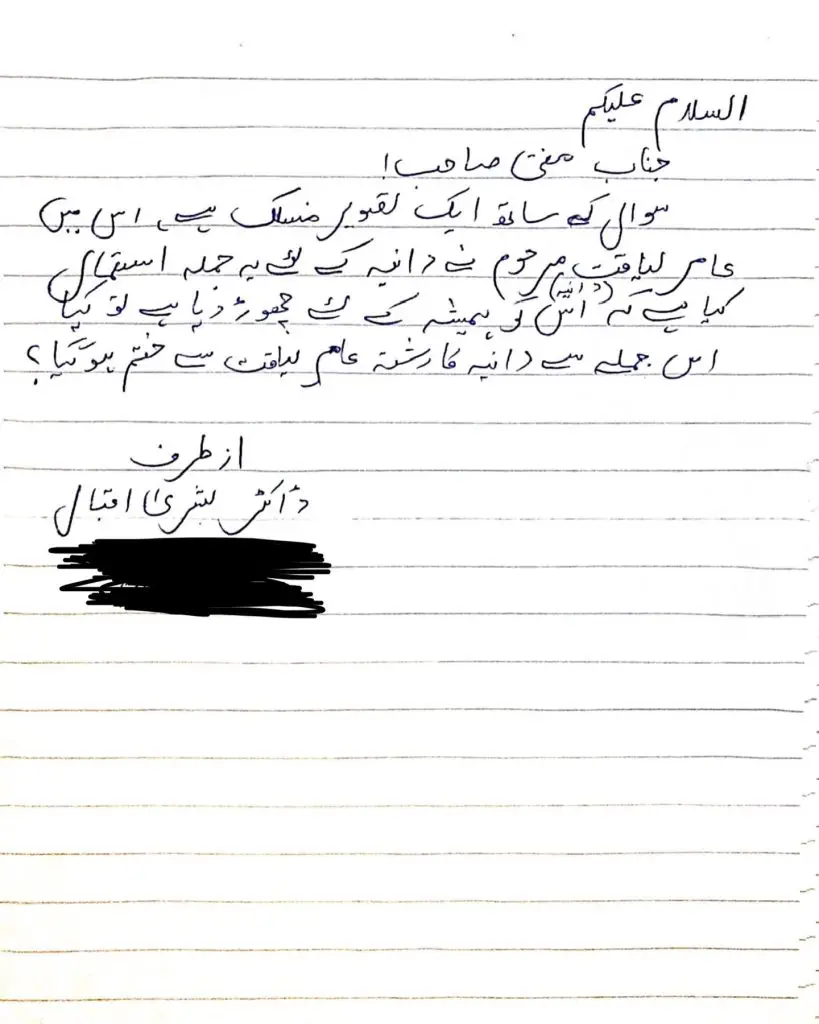 السلام علیکم
جناب مفتی صاحب!
سوال کے ساتھ ایک تصویر منسلک ہے، اس میں
عامر لیاقت مرحوم نے دانیہ کے لئے یہ جملہ استعمال
کیا ہے کہ اس (دانیہ) کو ہمیشہ کے لئے چھوڑ دیا ہے تو کیا
اس جملہ سے دانیہ کا رشتہ عامر لیاقت سے ختم ہوگیا؟
از طرف
ڈاکٹر بشریٰ اقبال